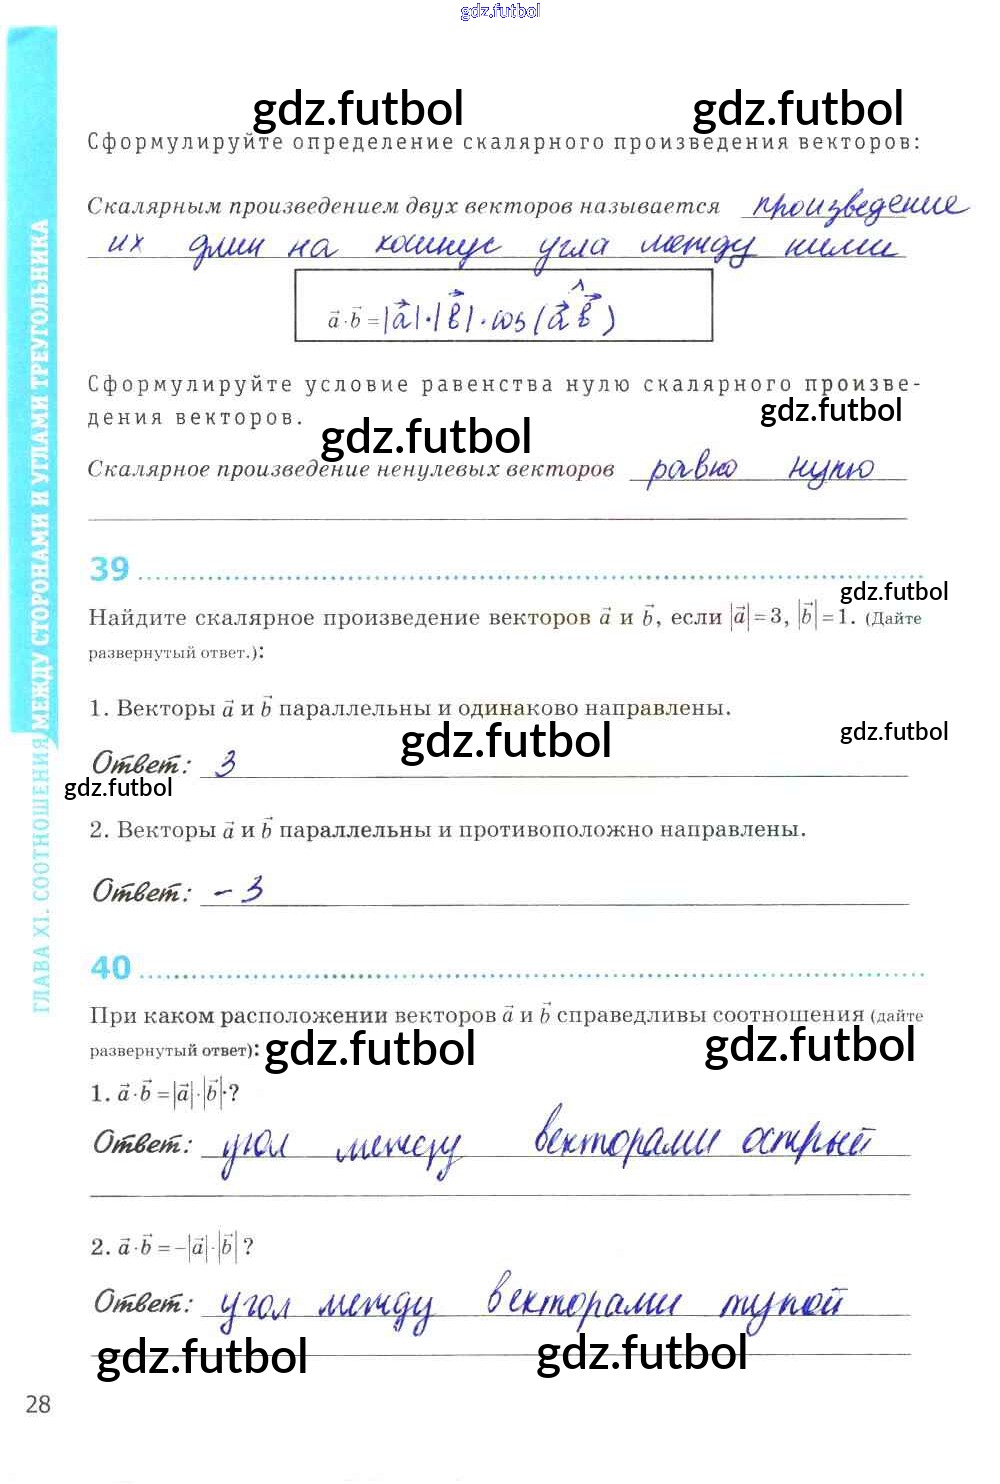 gdz.futbol
gdz.futbol gdz.futbol
Сформулируйте определение скалярного произведения векторов:
Скалярным произведением двух векторов называется произведение
их длин на косинус угла между ними
a⃗·b⃗=|a⃗|·|b⃗|·cos(a⃗^b⃗)
Сформулируйте условие равенства нулю скалярного произве-
дения векторов.
gdz.futbol
gdz.futbol
Скалярное произведение ненулевых векторов равно нулю
39
gdz.futbol
Найдите скалярное произведение векторов a⃗ и b⃗, если |a⃗|=3, |b⃗|=1. (Дайте
развернутый ответ.):
1. Векторы a⃗ и b⃗ параллельны и одинаково направлены.
gdz.futbol
gdz.futbol
Ответ: 3
gdz.futbol
2. Векторы a⃗ и b⃗ параллельны и противоположно направлены.
Ответ: -3
40
При каком расположении векторов a⃗ и b⃗ справедливы соотношения (дайте
развернутый ответ):
gdz.futbol gdz.futbol
1. a⃗·b⃗=|a⃗|·|b⃗|·?
Ответ: угол между векторами острый
2. a⃗·b⃗=-|a⃗|·|b⃗|?
Ответ: угол между векторами тупой
gdz.futbol gdz.futbol
28
ГЛАВА XI. СООТНОШЕНИЯ МЕЖДУ СТОРОНАМИ И УГЛАМИ ТРЕУГОЛЬНИКА